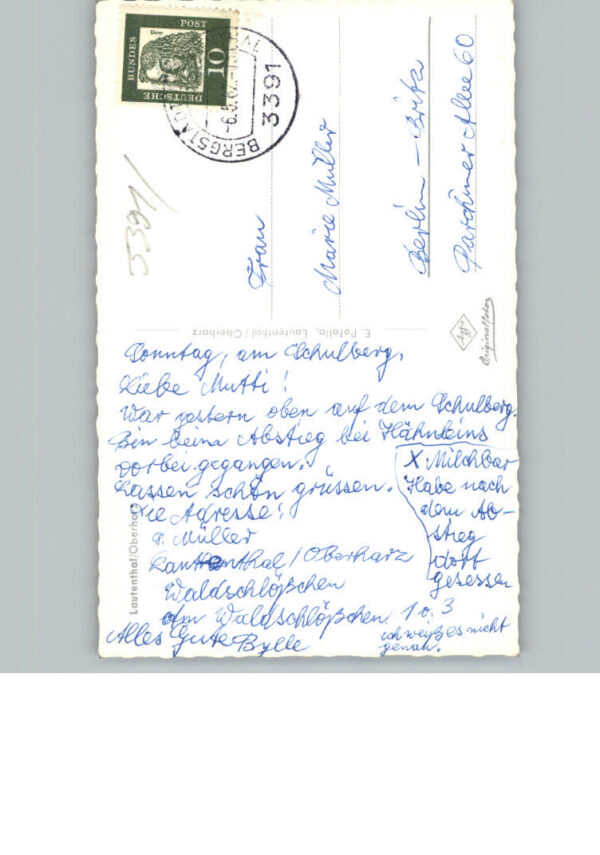 Dürer
BUNDES POST
DEUTSCHE
10
BERGSTADT
-6.5.62
3391
3391/
Frau
Marie Müller
Berlin - Britz
Parchimer Allee 60
E. Patella, Lautenthal/Oberharz
Agfa
Originalfoto
Lautenthal/Oberharz
Sonntag, am Schulberg,
Liebe Mutti!
War gestern oben auf dem Schulberg.
Bin beim Abstieg bei Hähnleins
vorbei gegangen.
Lassen schön grüssen.
X Milchbar
Habe nach
dem Ab-
stieg
dort
gesessen
Die Adresse!
Müller
Lautenthal/Oberharz
Waldschlößchen
Am Waldschlößchen 1 o. 3
ich weiß es nicht
genau.
Alles Gute Bylle